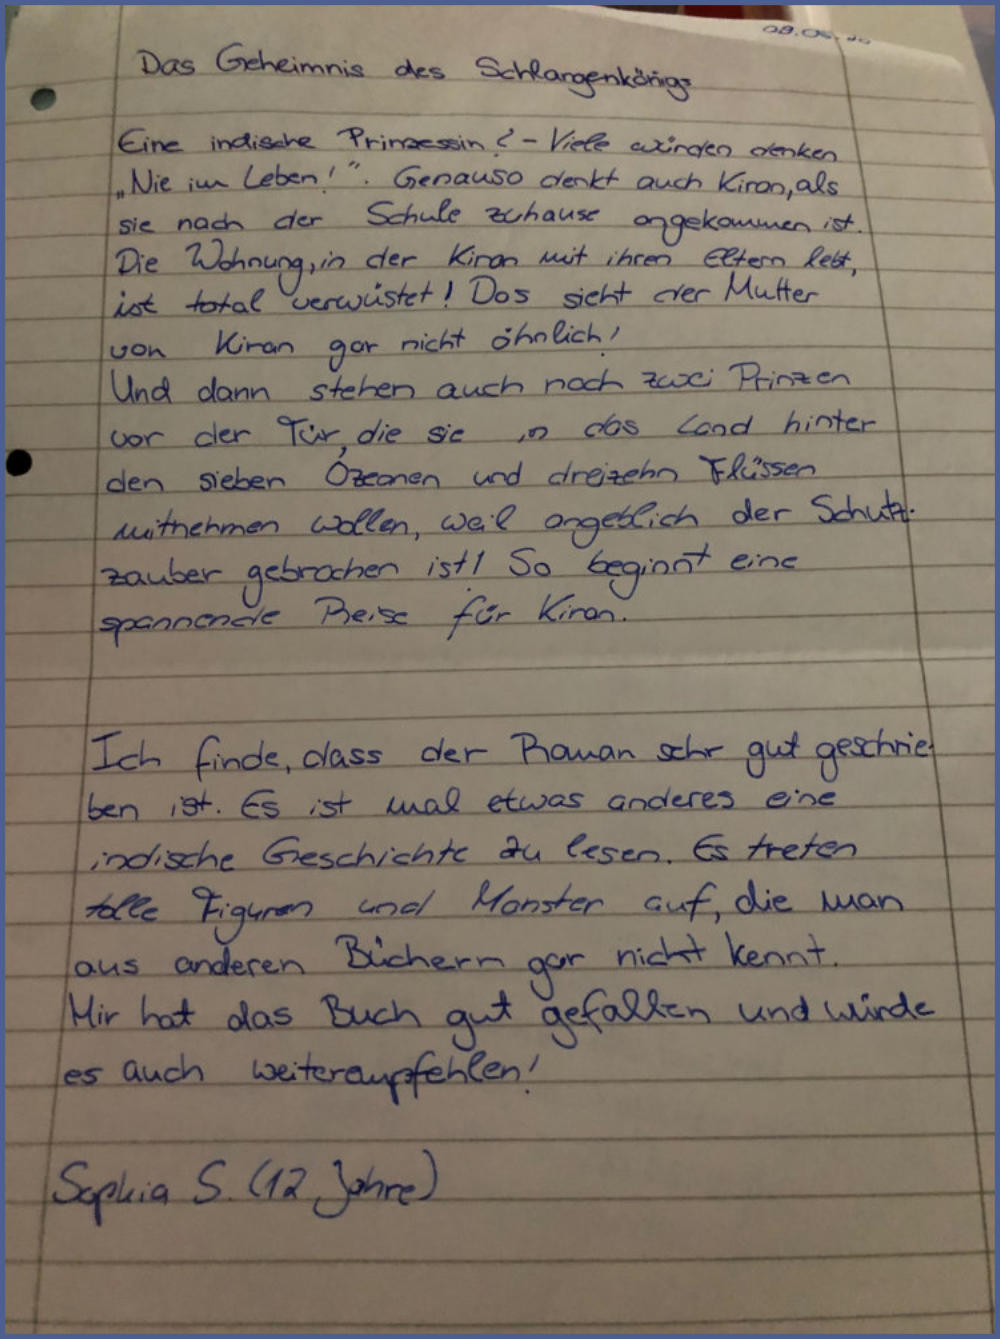 Das Geheimnis des Schlangenkönigs
Eine indische Prinzessin? - Viele würden denken
„Nie im Leben!". Genauso denkt auch Kiran, als
sie nach der Schule zuhause angekommen ist.
Die Wohnung, in der Kiran mit ihren Eltern lebt,
ist total verwüstet! Das sieht der Mutter
von Kiran gar nicht ähnlich!
Und dann stehen auch noch zwei Prinzen
vor der Tür, die sie in das Land hinter
den sieben Ozeanen und dreizehn Flüssen
mitnehmen wollen, weil angeblich der Schutz-
zauber gebrochen ist! So beginnt eine
spannende Reise für Kiran.
Ich finde, dass der Roman sehr gut geschrie-
ben ist. Es ist mal etwas anderes eine
indische Geschichte zu lesen. Es treten
tolle Figuren und Monster auf, die man
aus anderen Büchern gar nicht kennt.
Mir hat das Buch gut gefallen und würde
es auch weiterempfehlen!
Sophia S. (12 Jahre)